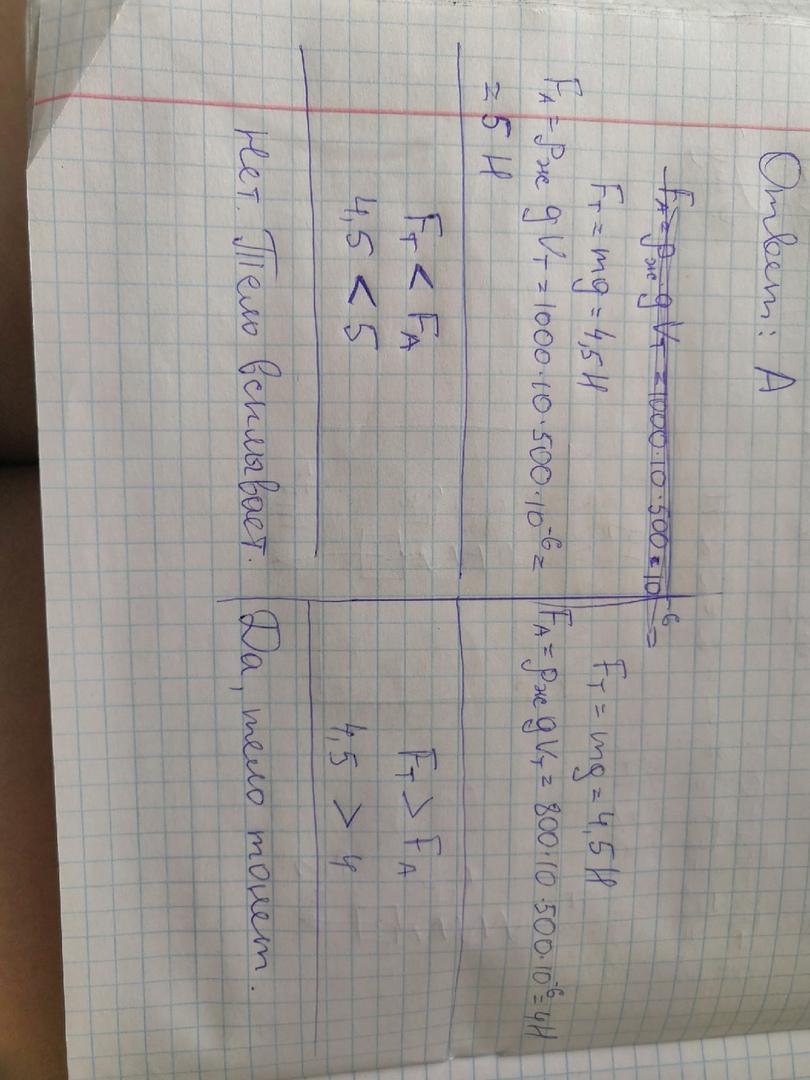 Ответ: А
F_A = ρ_ж g V_T = 1000·10·500·10^-6 =
F_T = mg = 4,5 Н
F_A = ρ_ж g V_T = 1000·10·500·10^-6 =
= 5 Н
F_T < F_A
4,5 < 5
Нет. Тело всплывает.
F_T = mg = 4,5 Н
F_A = ρ_ж g V_T = 800·10·500·10^-6 = 4Н
F_T > F_A
4,5 > 4
Да, тело тонет.